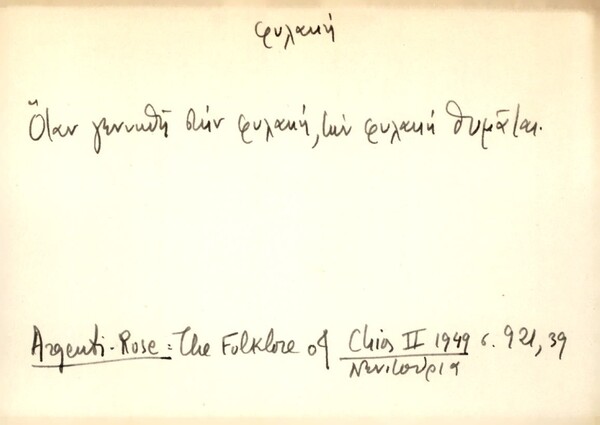 φυλακή
Ὅταν γεννηθῆ στήν φυλακή, τήν φυλακή θυμᾶται.
Argenti-Rose: The Folklore of Chios II 1949 σ. 921, 39
Νενιτούρια